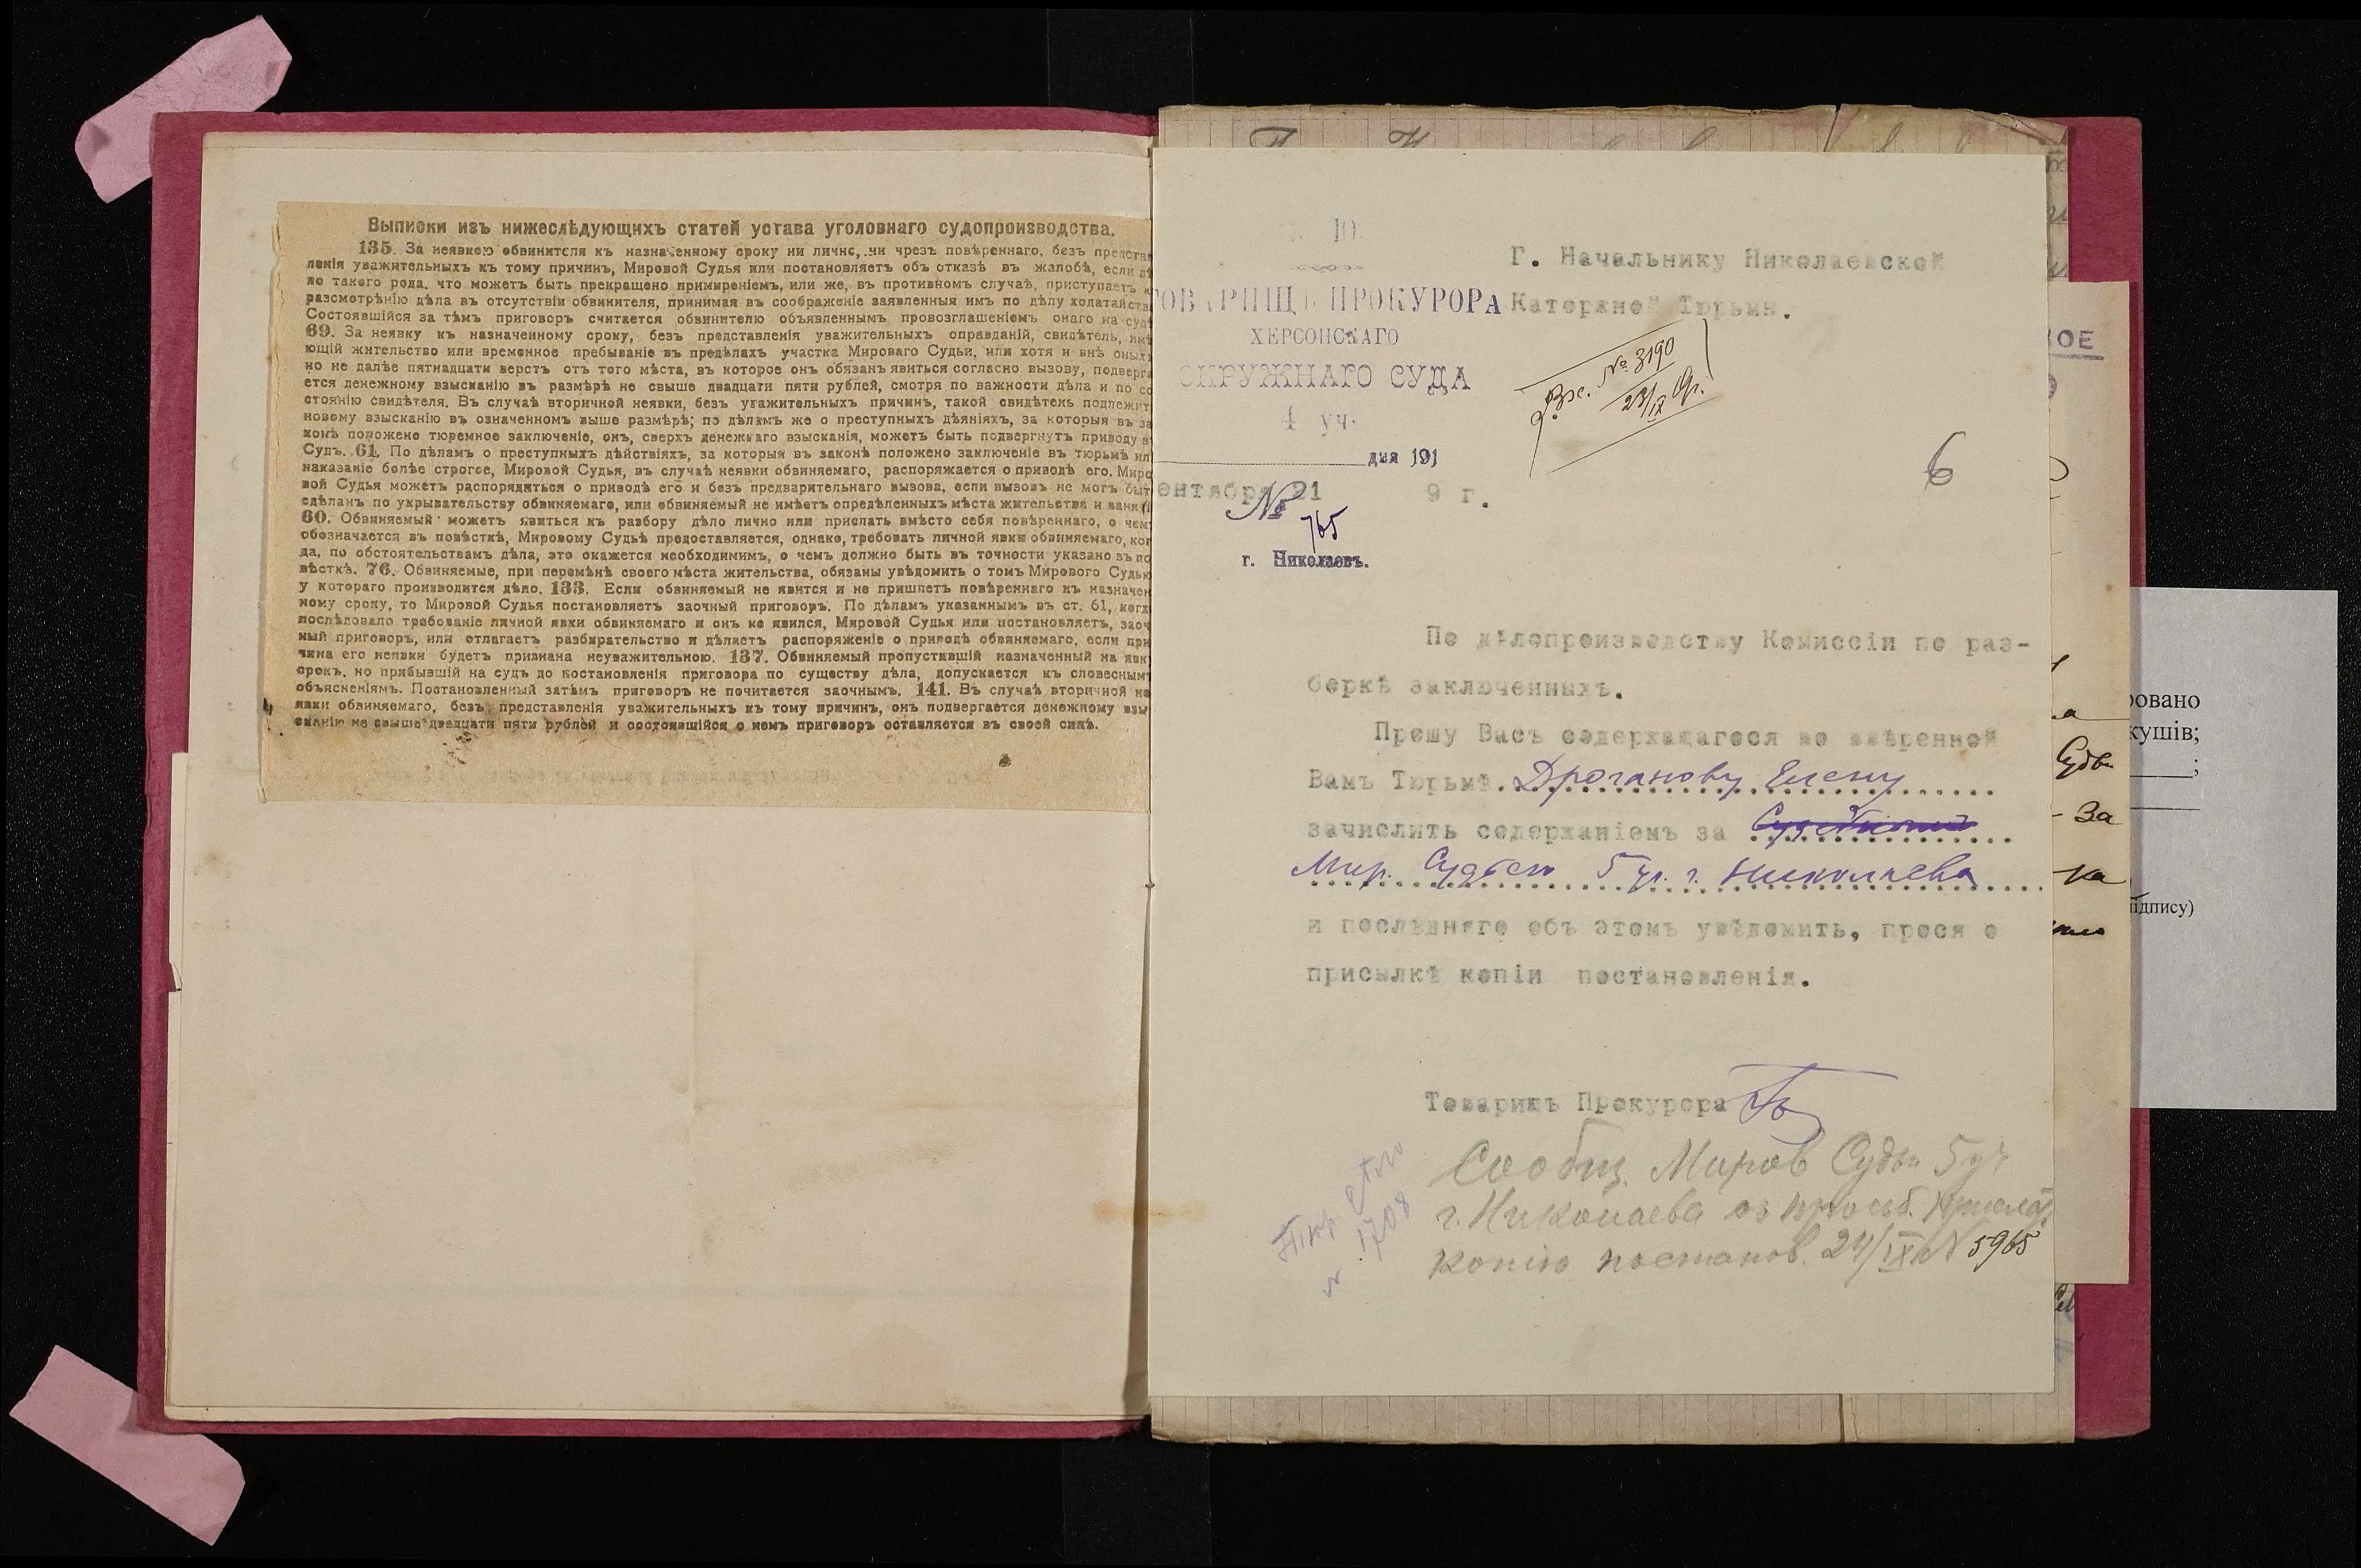 Выписки изъ нижеслѣдующихъ статей устава уголовнаго судопроизводства.
135. За неявкою обвинителя къ назначенному сроку ни лично, ни чрезъ повѣреннаго, безъ предста
ленія уважительныхъ къ тому причинъ, Мировой Судья или постановляетъ объ отказѣ въ жалобѣ, если дѣ
ло такого рода, что можетъ быть прекращено примиреніемъ, или же, въ противномъ случаѣ, приступаетъ к
разсмотрѣнію дѣла въ отсутствіи обвинителя, принимая въ соображеніе заявленныя имъ по дѣлу ходатайств
Состоявшійся за тѣмъ приговоръ считается обвинителю объявленнымъ провозглашеніемъ онаго на суд
69. За неявку къ назначенному сроку, безъ представленія уважительныхъ оправданій, свидѣтель, имѣ
ющій жительство или временное пребываніе въ предѣлахъ участка Мироваго Судьи, или хотя и внѣ оныхъ
но не далѣе пятнадцати верстъ отъ того мѣста, въ которое онъ обязанъ явиться согласно вызову, подверга
ется денежному взысканію въ размѣрѣ не свыше двадцати пяти рублей, смотря по важности дѣла и по со
стоянію свидѣтеля. Въ случаѣ вторичной неявки, безъ уважительныхъ причинъ, такой свидѣтель подлежит
новому взысканію въ означенномъ выше размѣрѣ; по дѣламъ же о преступныхъ дѣяніяхъ, за которыя въ за
конѣ положено тюремное заключеніе, онъ, сверхъ денежнаго взысканія, можетъ быть подвергнутъ приводу в
Судъ. 61. По дѣламъ о преступныхъ дѣйствіяхъ, за которыя въ законѣ положено заключеніе въ тюрьмѣ ил
наказаніе болѣе строгое, Мировой Судья, въ случаѣ неявки обвиняемаго, распоряжается о приводѣ его. Миро
вой Судья можетъ распорядиться о приводѣ его и безъ предварительнаго вызова, если вызовъ не могъ быт
сдѣланъ по укрывательству обвиняемаго, или обвиняемый не имѣетъ опредѣленныхъ мѣста жительства и ваня
60. Обвиняемый можетъ явиться къ разбору дѣло лично или прислать вмѣсто себя повѣреннаго, о чем
обозначается въ повѣсткѣ, Мировому Судьѣ предоставляется, однако, требовать личной явки обвиняемаго, ког
да, по обстоятельствам дѣла, это окажется необходимимъ, о чемъ должно быть въ точности указано въ по
вѣсткѣ. 76. Обвиняемые, при перемѣнѣ своего мѣста жительства, обязаны увѣдомить о томъ Мирового Судью
у котораго производится дѣло. 133. Если обвиняемый не явится и не пришлетъ повѣреннаго къ назначен
ному сроку, то Мировой Судья постановляетъ заочный приговоръ. По дѣламъ указаннымъ въ ст. 61, когд
послѣдовало требованіе личной явки обвиняемаго и онъ не явился, Мировой Судья или постановляетъ, заоч
ный приговоръ, или отлагаетъ разбирательство и дѣлаетъ распоряженіе о приводѣ обвиняемаго, если при
чина его неявки будетъ признана неуважительною. 137. Обвиняемый пропустившій назначенный на явк
срокъ, но прибывшій на судъ до постановленія приговора по существу дѣла, допускается къ словесным
объясненіямъ. Постановленный затѣмъ приговоръ не почитается заочнымъ. 141. Въ случаѣ вторичной не
явки обвиняемаго, безъ представленія уважительныхъ къ тому причинъ, онъ подвергается денежному взы
сканію не свыше двадцати пяти рублей и состоявшійся о немъ приговоръ оставляется въ своей силѣ.
Ю
ТОВАРИЩЪ ПРОКУРОРА
ХЕРСОНСКАГО
ОКРУЖНАГО СУДА
4 уч.
дня 191
ентября 21 9 г.
№ 765
г. Николаевъ.
Г. Начальнику Николаевской
Каторжной Тюрьмы.
Вх. № 3190
23/IX 19г.
6
По дѣлопроизводству Комиссіи по раз-
боркѣ заключенныхъ.
Прошу Васъ содержащагося во ввѣренной
Вамъ Тюрьмѣ. Дроганову Елену
зачислить содержаніемъ за
Мир. Судьею 5 уч. г. Николаева
и послѣдняго объ этомъ увѣдомить, прося о
присылкѣ копіи постановленія.
Товарищъ Прокурора
Сообщ. Миров Судьи 5 уч
г. Николаева оз просьб.
копию постанов. 24/IX № 5965
1708
КОЕ
Судьи
- За
ка
ровано
кушів;
;
підпису)